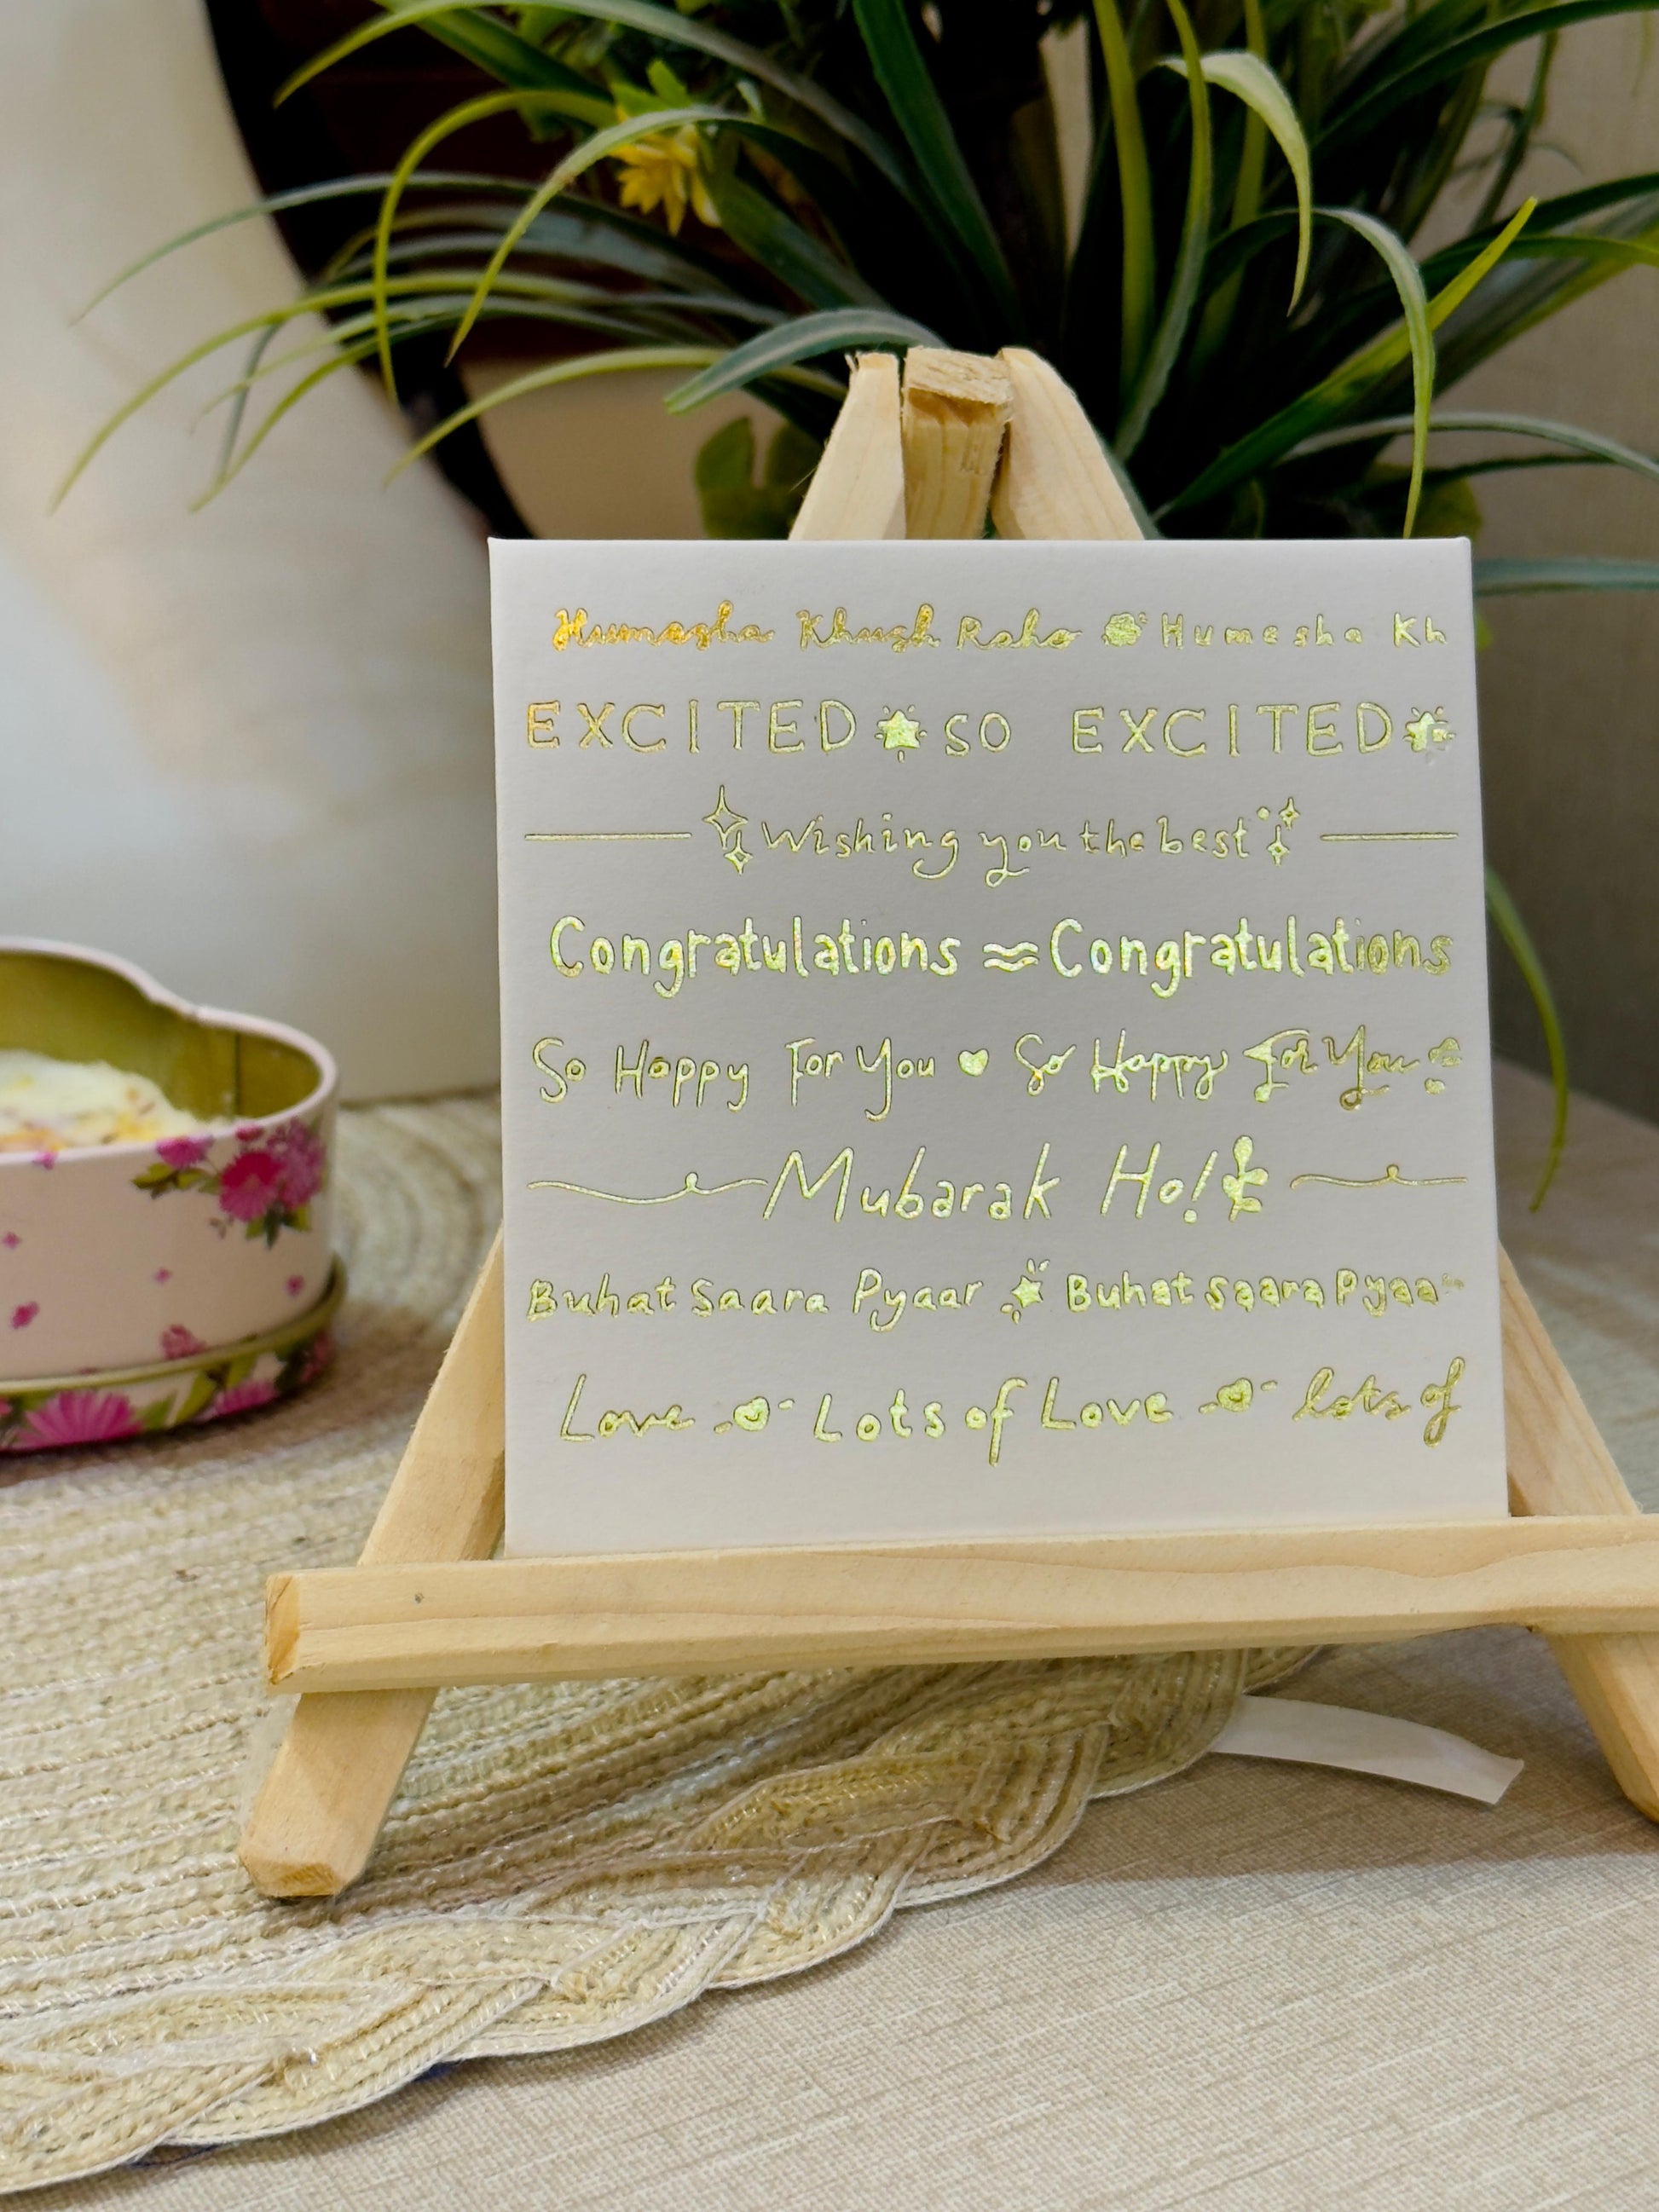 Humesha Khush Raho Humesha Kh
EXCITED SO EXCITED
Wishing you the best
Congratulations ≈ Congratulations
So Happy For You So Happy For You
Mubarak Ho!
Buhat Saara Pyaar Buhat saara Pyaar
Love Lots of Love lots of